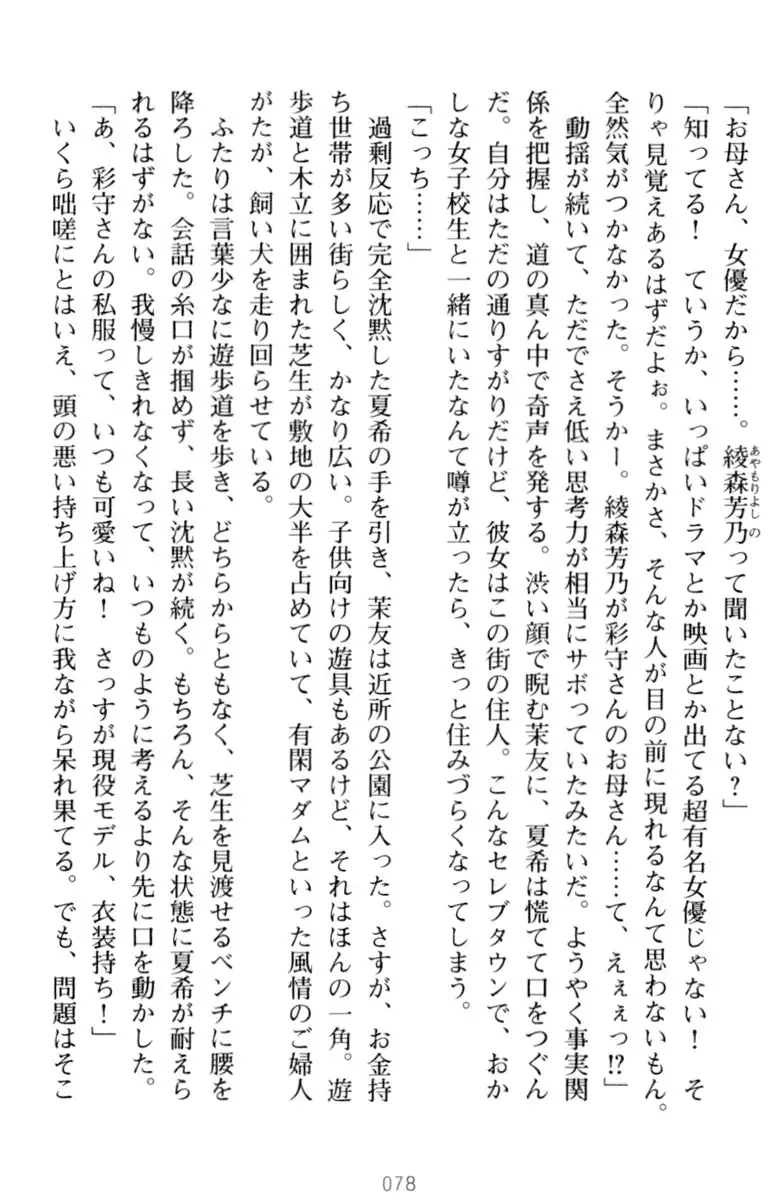 「お母さん、女優だから……。綾森芳乃って聞いたことない？」
あやもりよしの
「知ってる！　ていうか、いっぱいドラマとか映画とか出てる超有名女優じゃない！　そ
りゃ見覚えあるはずだよぉ。まさかさ、そんな人が目の前に現れるなんて思わないもん。
全然気がつかなかった。そうかー。綾森芳乃が彩守さんのお母さん……て、えぇぇっ!?」
動揺が続いて、ただでさえ低い思考力が相当にサボっていたみたいだ。ようやく事実関
係を把握し、道の真ん中で奇声を発する。渋い顔で睨む茉友に、夏希は慌てて口をつぐん
だ。自分はただの通りすがりだけど、彼女はこの街の住人。こんなセレブタウンで、おか
しな女子校生と一緒にいたなんて噂が立ったら、きっと住みづらくなってしまう。
「こっち……」
過剰反応で完全沈黙した夏希の手を引き、茉友は近所の公園に入った。さすが、お金持
ち世帯が多い街らしく、かなり広い。子供向けの遊具もあるけど、それはほんの一角。遊
歩道と木立に囲まれた芝生が敷地の大半を占めていて、有閑マダムといった風情のご婦人
がたが、飼い犬を走り回らせている。
ふたりは言葉少なに遊歩道を歩き、どちらからともなく、芝生を見渡せるベンチに腰を
降ろした。会話の糸口が掴めず、長い沈黙が続く。もちろん、そんな状態に夏希が耐えら
れるはずがない。我慢しきれなくなって、いつものように考えるより先に口を動かした。
「あ、彩守さんの私服って、いつも可愛いね！　さっすが現役モデル、衣装持ち！」
いくら咄嗟にとはいえ、頭の悪い持ち上げ方に我ながら呆れ果てる。でも、問題はそこ
078